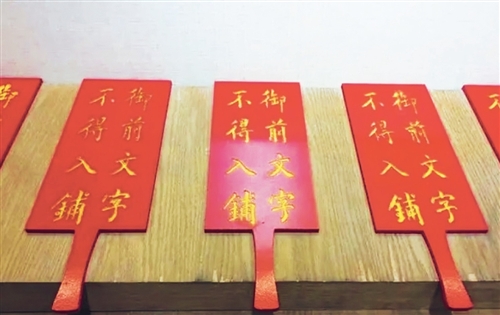 御前文字
不得入鋪
御前文字
不得入鋪
御前文字
不得入鋪